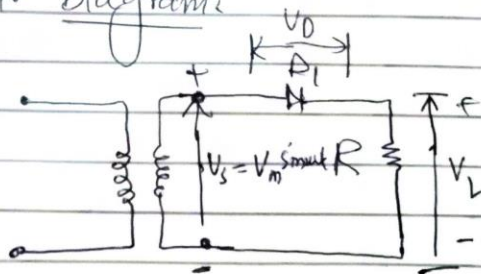 Diagram:
V_D
D_1
+
+
V_s = V_m sinωt R
V_L
-
-